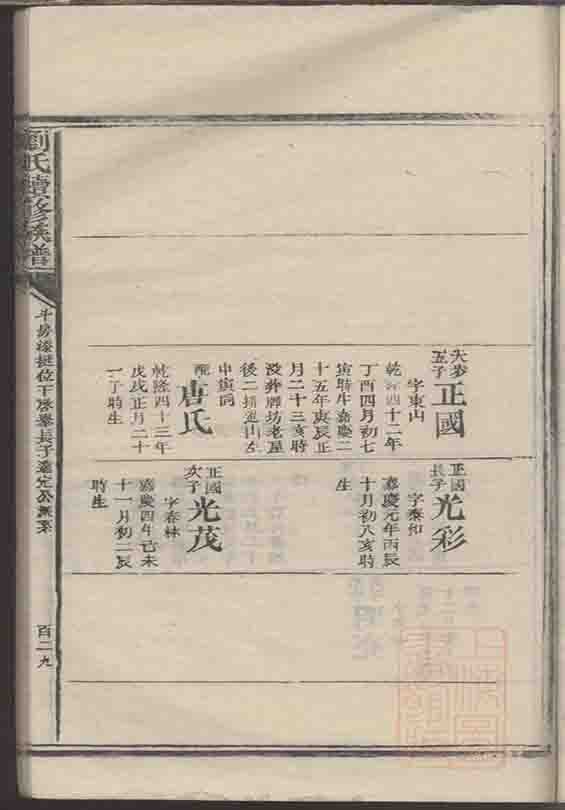 劉氏續修族譜
正國
五子
字東山
乾隆四十二年
丁酉四月初七
寅時生嘉慶二
十五年庚辰正
月二十三亥時
没葬牌坊老屋
後二塘進山左
申寅向
配
唐氏
乾隆四十三年
戊戌正月二十
一子時生
正國
長子
光彩
字泰和
嘉慶元年丙辰
十月初八亥時
生
正國
次子
光茂
字春林
嘉慶四年己未
十一月初二辰
時生
百二九